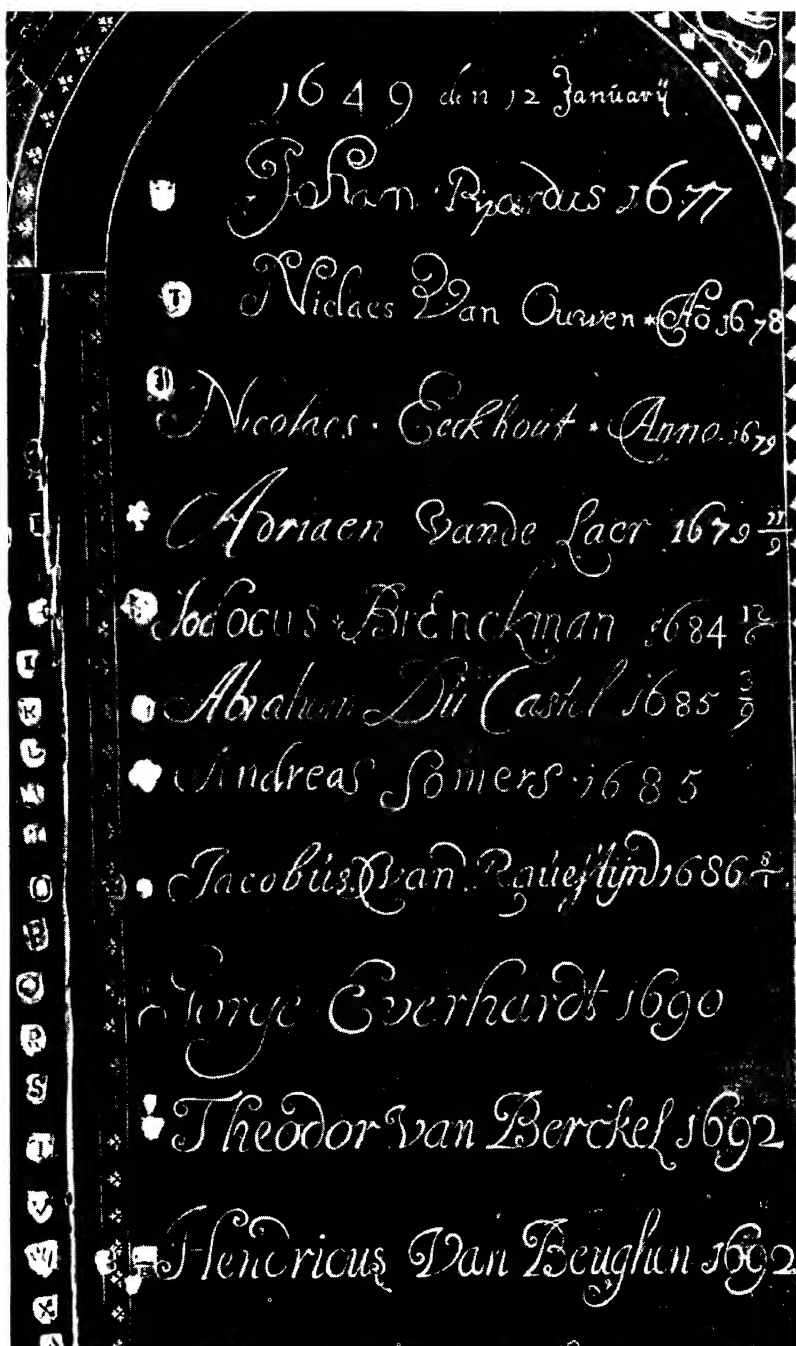 1649 den 12 Januarÿ
Johan Pijardus 1677
Niclaes Van Ouwen * Aō 1678
Nicolaes · Eeckhout * Anno 1679
Adriaen Vande Laer 1679 11/9
Jodocus Brienckman 1684 12/6
Abraham Du Castel 1685 3/9
Andreas Somers · 1685
Jacobús Van Raúestijn 1686 8/1
Jorge Everhardt 1690
Theodor van Berckel 1692
Hendricus Van Beughen 1692
I
K
L
M
N
O
P
Q
R
S
T
V
W
X